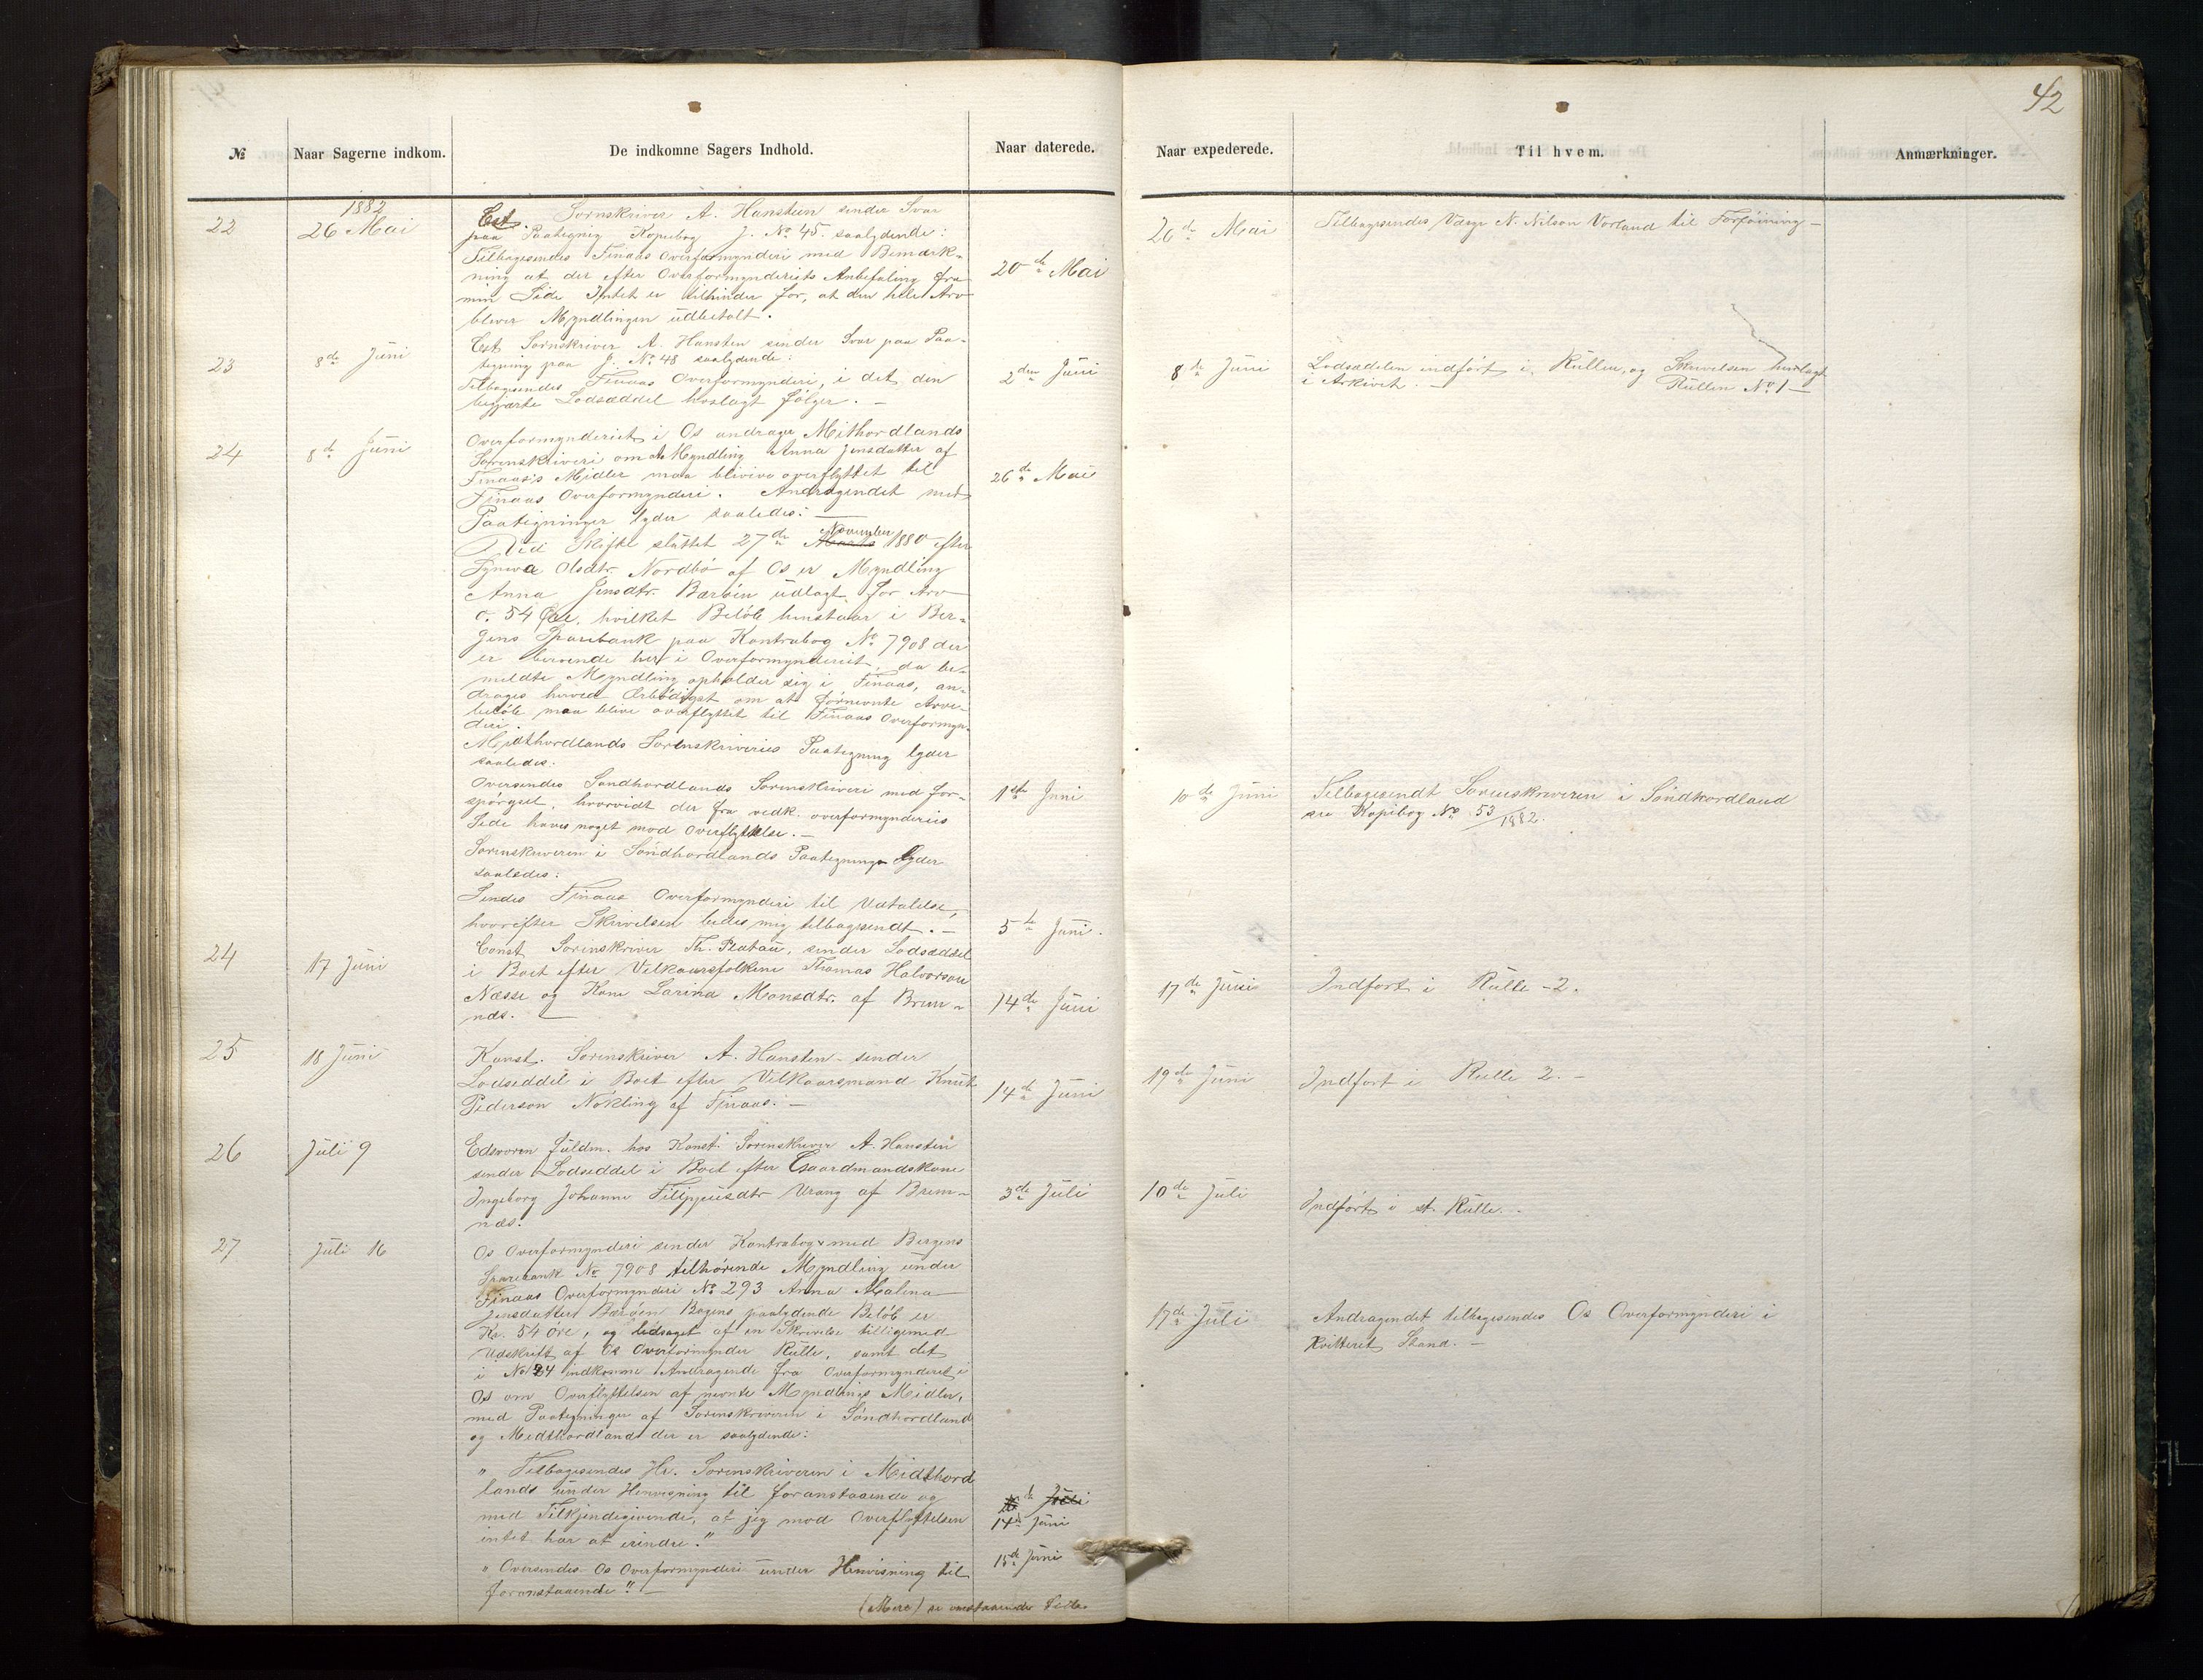 42
№ Naar Sagerne indkom. De indkomne Sagers Indhold. Naar daterede. Naar expederede. Til hvem. Anmærkninger.
1882
22 26 Mai
Cst. Sornskriver A. Hansteen sender Svar
paa Paategnig Kopiebog J. No 45. saalydende:
Tilbagesendes Finaas Overformynderi med Bemærk-
ning at der efter Overformynderiets Anbefaling fra
min Side Intet er tilhinder for, at den hele Arv
bliver Myndlingen udbetalt.
20de Mai
26de Mai
Tilbagesendes Værge N. Nilson Vorland til Forføining -
23 8de Juni
Cst Sornskriver A. Hansten sender Svar paa Paa-
tegning paa J. No 48 saalydende:
Tilbagesendes Finaas Overformynderi, i det den
begjærte Lodsæddel hoslagt følger. -
2den Juni
8de Juni
Lodsædelen indført i Rullen, og Skrivelsen henlagt
i Arkivet. - Rullen No 1 -
24 8de Juni
Overformynderiet i Os andrager Mithordlands
Sorenskriveri om at Myndling Anna Jensdatter af
Finaas's Midler maa blivive overflyttet til
Finaas Overformynderi. Andragendet med
Paategninger lyder saaledes: -
26de Mai
Ved Skifte sluttet 27de Marts November 1880 efter
Synva Olsdtr. Nordbø af Os er Myndling
Anna Jensdtr. Bærøen udlagt for Arv
0. 54 Øre, hvilket Beløb henstaar i Ber-
gens Sparebank paa Kontrabog No 7908 der
er beroende her i Overformynderiet, da be-
meldte Myndling opholder sig i Finaas, an-
drages herved Ærbødigst om at førnevnte Arve-
beløb maa blive overflyttet til Finaas Overformyn-
deri.
Midthordlands Sorenskriveries Paategning lyder
saaledes:
Oversendes Søndhordlands Sorenskriveri med for-
spørgsel, hvorvidt der fra vedk. overformynderies
Side haves noget mod Overflyttelse. -
1ste Juni
10de Juni
Tilbagesendt Sorenskriveren i Søndhordland
se Kopibog No 53/1882.
Sorenskriveren i Søndhordlands Paategninge lyder
saaledes:
Sendes Finaas Overformynderi til Udtalelse,
hvorefter Skrivelsen bedes mig tilbagesendt. -
5te Juni.
24 17 Juni
Const Sorenskriver Th. Platou, sender Lodsæddel
i Boet efter Velkaarsfolkene Thomas Halvorson
Næsse og Kone Larina Monsdtr. af Brem-
næs. -
14de Juni
17de Juni
Indført i Rulle - 2.
25 18 Juni
Konst. Sorenskriver A. Hansten - sender
Lodseddel i Boet efter Velkaarsmand Knut
Pederson Nøkling af Finaas. -
14de Juni
19de Juni
Indført i Rulle 2. -
26 Juli 9
Edsvoren fuldm. hos Konst. Sorenskriver A. Hansten
sender Lodseddel i Boet efter Gaardmandskone
Ingeborg Johanne Filippusdtr Vrang af Brem-
næs.
3de Juli
10de Juli
Indført i st. Rulle. -
27 Juli 16
Os Overformynderi sender Kontrabog med Bergens
Sparebank No 7908 tilhørende Myndling under
Finaas Overformynderi No 293 Anna Malena
Jensdatter Bærøen Bogens paalydende Beløb er
Kr. 54 øre, og ledsaget af en Skrivelse tilligemed
Udskrift af Os Overformynder Rulle, samt det
i No 24 indkomne Andragende fra Overformynderiet i
Os om Overflyttelsen af nevnte Myndlings Midler,
med Paategninger af Sorenskriveren i Søndhordland
og Medthordland der er saalydende:
17de Juli
Andragendet tilbagesendes Os Overformynderi i
kvitteret Stand. -
" Tilbagesendes Hr. Sorenskriveren i Midthord
lands under Henvisning til foranstaaende og
med Tilkjendegivende, at jeg mod Overflyttelsen
intet har at erindre."
de Juli
14de Juni
" Oversendes Os Overformynderi under Henvisning til
foranstaaende". -
15de Juni
(Mere) se Side